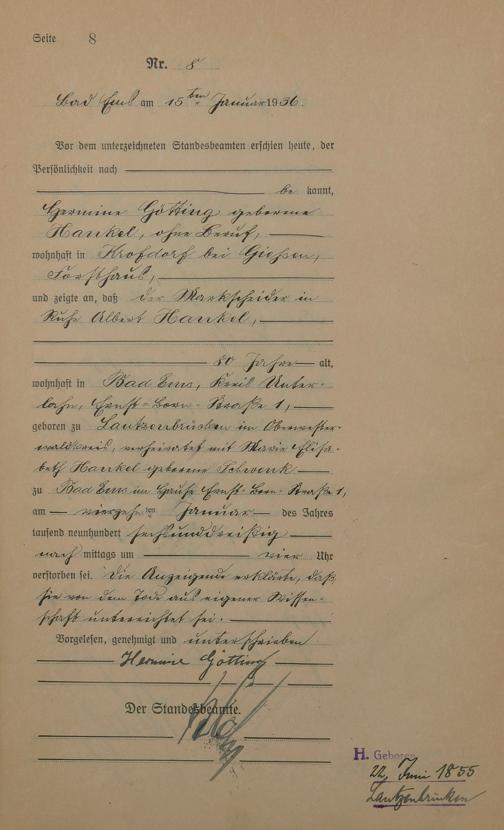 Seite 8
Nr. 8
Bad Ems am 15ten Januar 1936.
Vor dem unterzeichneten Standesbeamten erschien heute, der
Persönlichkeit nach
be kannt,
Hermine Götting geborene
Hankel, ohne Beruf,
wohnhaft in Krofdorf bei Gießen,
Forsthaus,
und zeigte an, daß der Markscheider in
Ruhe Albert Hankel,
80 Jahre alt,
wohnhaft in Bad Ems, Kreis Unter-
lahn, Ernst-Born-Straße 1,
geboren zu Lautzenbrücken im Oberwester-
waldkreis, verheiratet mit Marie Elisa-
beth Hankel geborene Schwenk
zu Bad Ems im Hause Ernst-Born-Straße 1,
am vierzehnten Januar des Jahres
tausend neunhundert sechsunddreißig
nach mittags um vier Uhr
verstorben sei. Die Anzeigende erklärte, daß
sie von dem Tode aus eigener Wissen-
schaft unterrichtet sei.
Vorgelesen, genehmigt und unterschrieben
Hermine Götting
Der Standesbeamte.
H. Geboren
22. Juni 1855
Lautzenbrücken